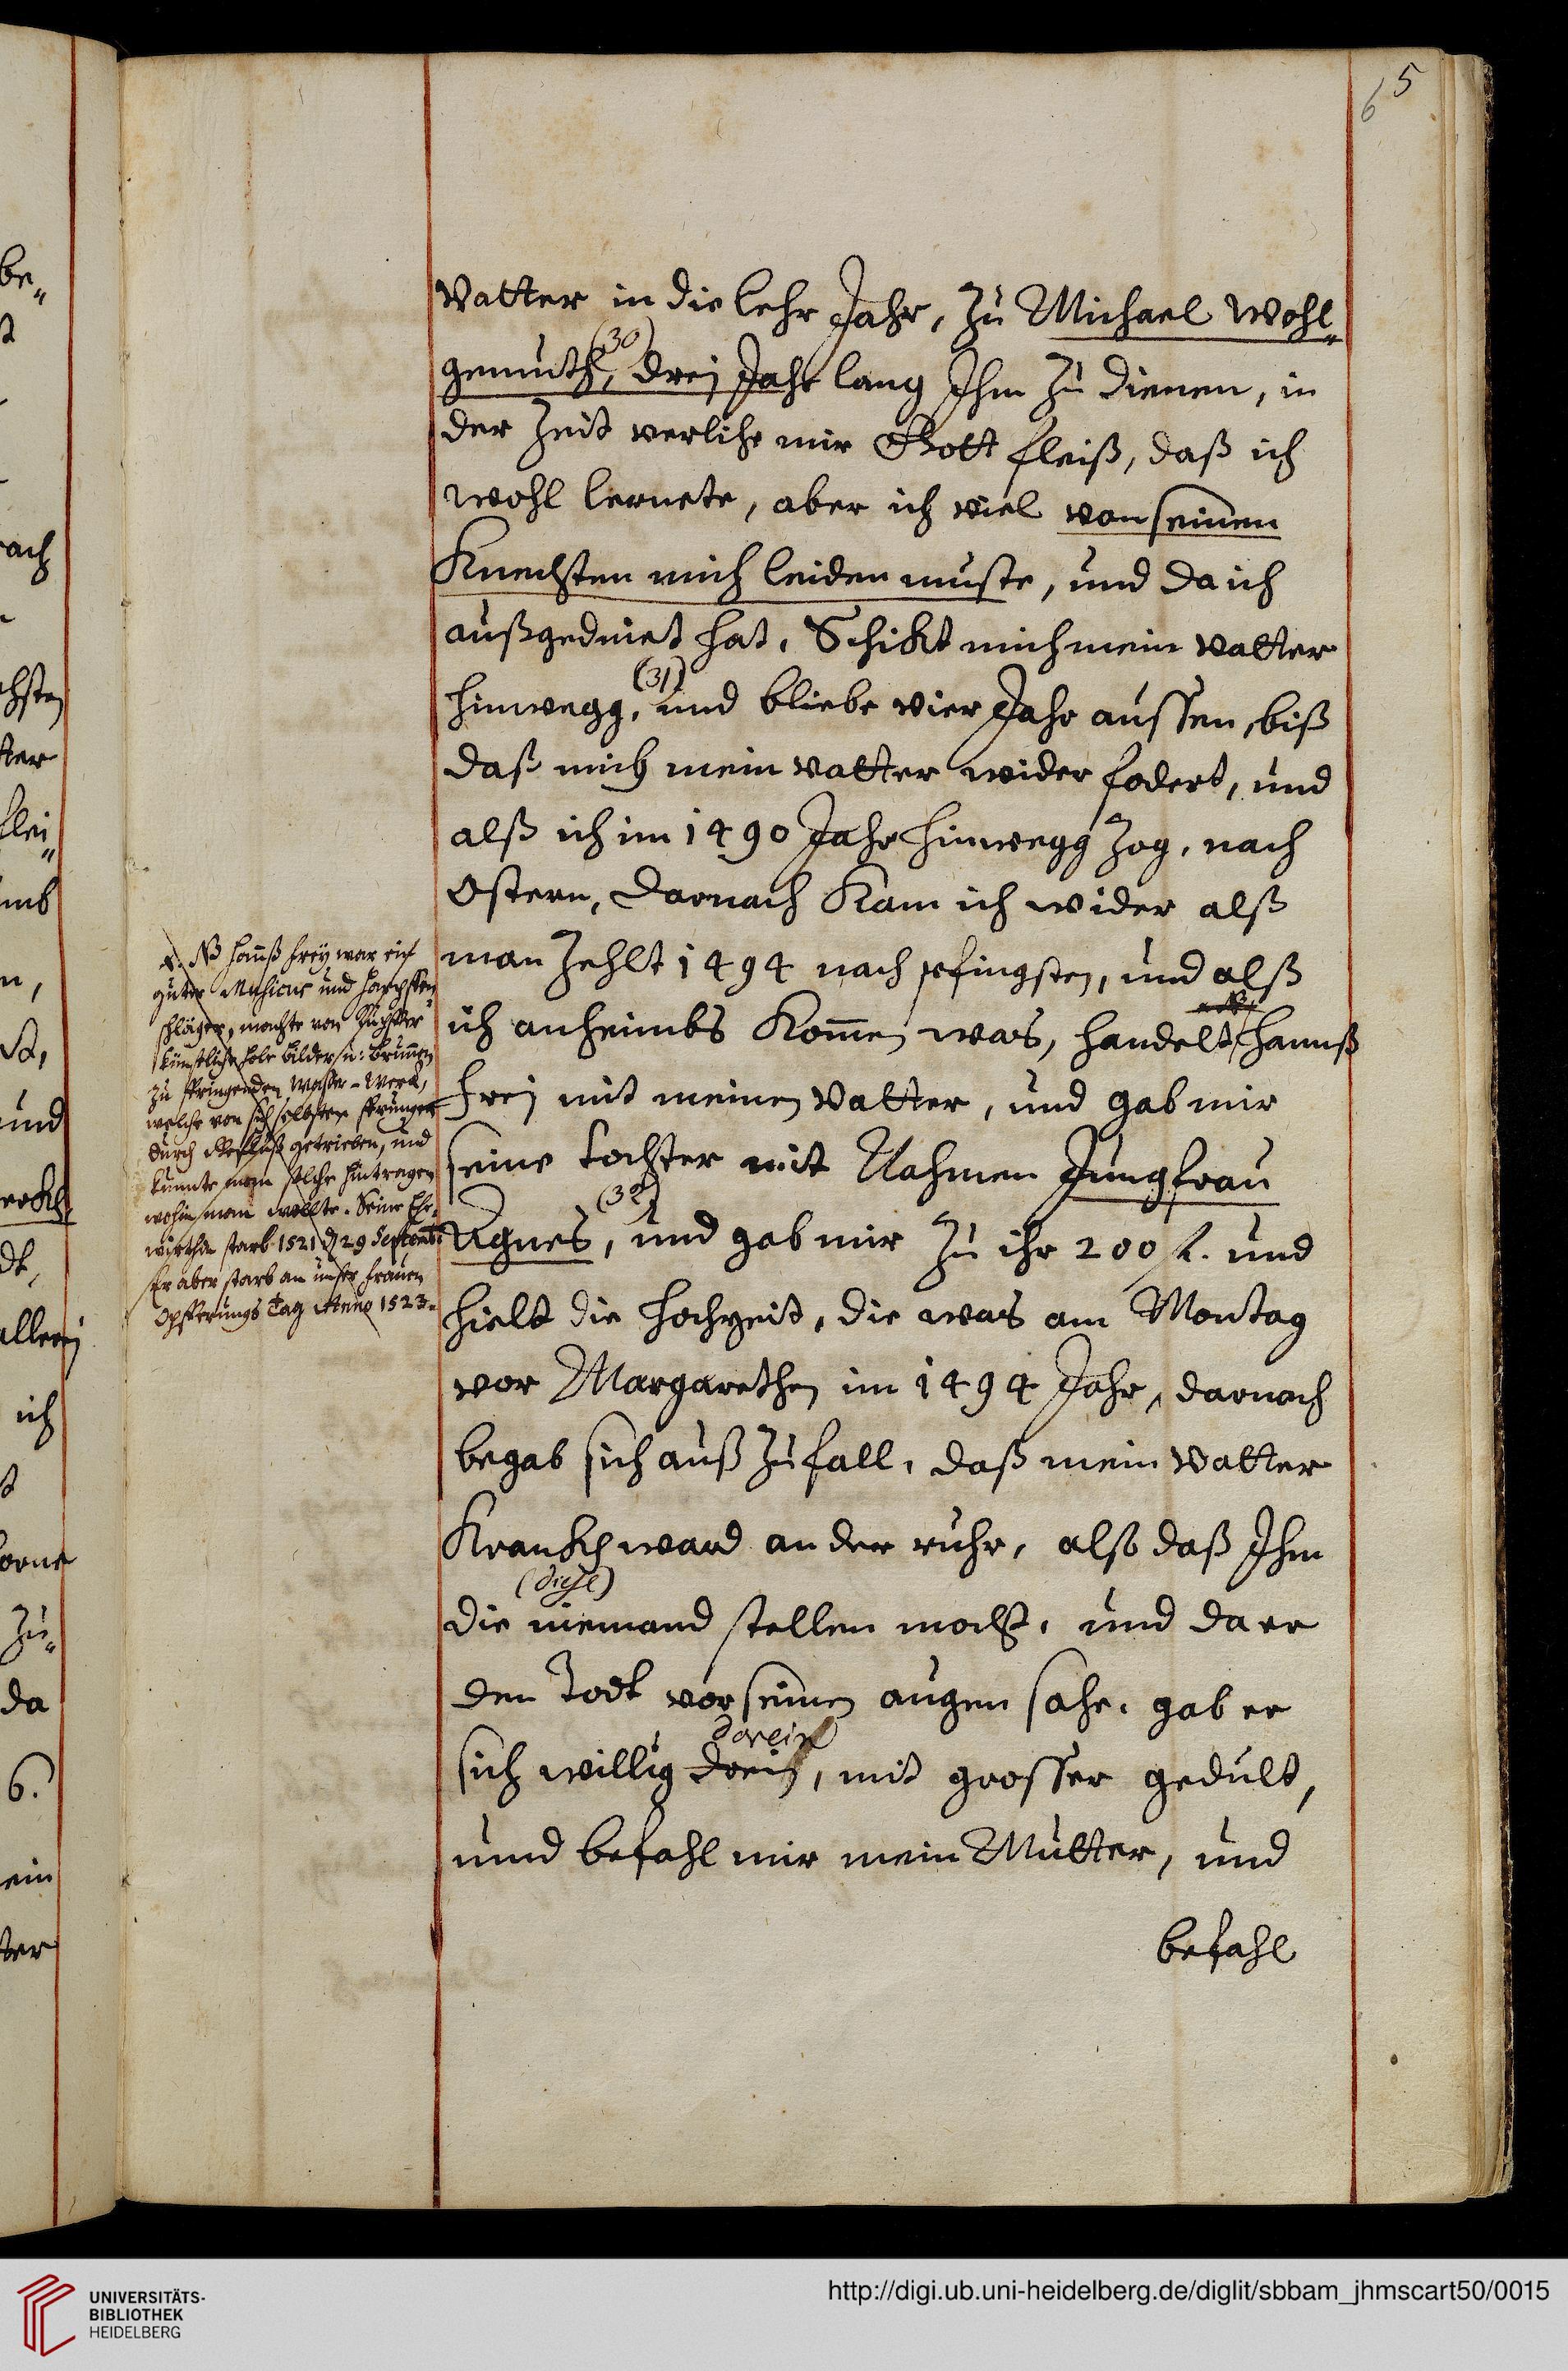 65
Vatter in die lehr Jahr, zu Michael Wohl„
gemuth, (30) drej Jahr lang Ihm zu dienen, in
der Zeit verlihe mir Gott fleiß, daß ich
wohl lernete, aber ich viel von seinen
Knechten mich leiden muste, und da ich
außgedinet hat, Schikt mich mein Vatter
hinwegg, (31) und bliebe vier Jahr aussen, biß
daß mich mein Vatter wider fodert, und
alß ich im 1490 Jahr hinwegg zog, nach
Ostern, darnach Kam ich wider alß
man Zehlt 1494 nach pfingsten, und alß
ich anheimbs Kom̄en was, handelt NB hannß
Frej mit meinen Vatter, und gab mir
seine tochter mit Nahmen Jungfrau
Agnes, (32) und gab mir zu ihr 200 f. und
hielt die hochzeit, die was am Montag
vor Margarethen im 1494 Jahr, darnach
begab sich auß zufall, daß mein Vatter
Krankh ward an der ruhr, also daß Ihm
(diese)
die niemand stellen mocht, und da er
den Todt vor seinen augen sahe, gab er
darein
sich willig drein, mit grosser gedult,
unnd befahl mir mein Mutter, und
befahl
NB hannß Frey war ein
guter Musicus und Harpffen
schläger, machte von Kupffer
künstliche hole bilder u: brunnen
zu springenden Wasser-Werck,
welche von sich selbsten sprungen
durch getrieben, und
kunnte man solche hintragen
wohin man wollte. Seine Ehe„
wirthin starb 1521 d 29 Septemb:
Er aber starb an unser Frauen
Opfferungs Tag Anno 1523.
be„
ach
chsten
ter
flei„
umb
und
ich
zu„
da
6.
ein
ter
UNIVERSITÄTS-
BIBLIOTHEK
HEIDELBERG
http://digi.ub.uni-heidelberg.de/diglit/sbbam_jhmscart50/0015